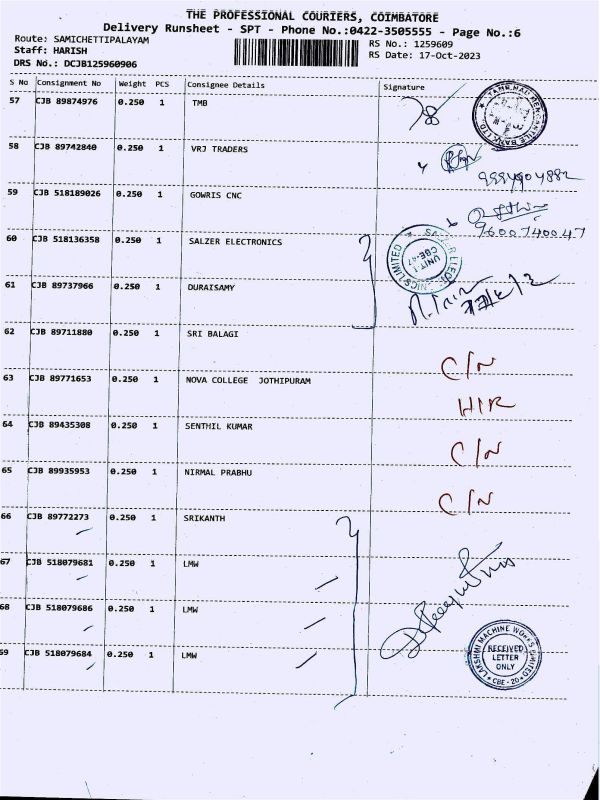 THE PROFESSIONAL COURIERS, COIMBATORE
Delivery Runsheet - SPT - Phone No.:0422-3505555 - Page No.:6
Route: SAMICHETTIPALAYAM RS No.: 1259609
Staff: HARISH RS Date: 17-Oct-2023
DRS No.: DCJB125960906
S No Consignment No Weight PCS Consignee Details Signature
57 CJB 89874976 0.250 1 TMB
58 CJB 89742840 0.250 1 VRJ TRADERS
9994904882
59 CJB 518189026 0.250 1 GOWRIS CNC
9600740047
60 CJB 518136358 0.250 1 SALZER ELECTRONICS
SALZER ELECTRONICS LIMITED
UNIT-1
CBE-47
61 CJB 89737966 0.250 1 DURAISAMY
62 CJB 89711880 0.250 1 SRI BALAGI C/N
63 CJB 89771653 0.250 1 NOVA COLLEGE JOTHIPURAM HIR
64 CJB 89435308 0.250 1 SENTHIL KUMAR C/N
65 CJB 89935953 0.250 1 NIRMAL PRABHU C/N
66 CJB 89772273 0.250 1 SRIKANTH
67 CJB 518079681 0.250 1 LMW
68 CJB 518079686 0.250 1 LMW
69 CJB 518079684 0.250 1 LMW
LAKSHMI MACHINE WORKS LIMITED
RECEIVED
LETTER
ONLY
CBE - 20